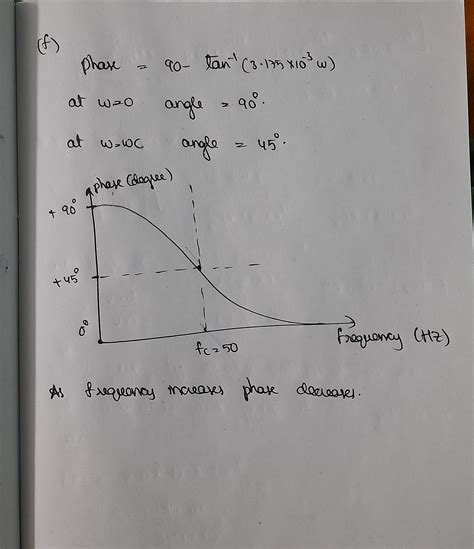 (f)
Phase = 90 - tan⁻¹ (3.175 × 10⁻³ w)
at w=0 angle = 90°.
at w=wc angle = 45°.
phase (degree)
+90°
+45°
0°
fc=50
frequency (Hz)
As frequency increases phase decreases.